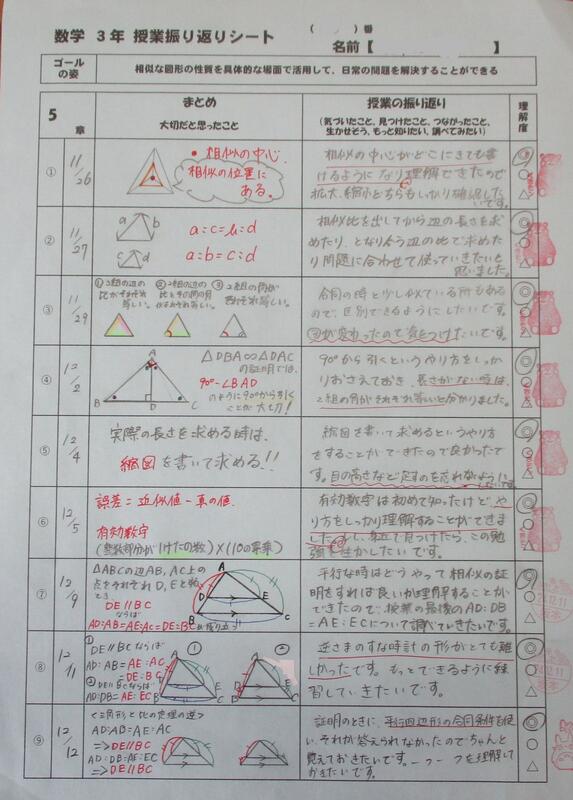 数学 3年 授業振り返りシート
( )番
名前【 】
ゴールの姿
相似な図形の性質を具体的な場面で活用して、日常の問題を解決することができる
5章
まとめ
大切だと思ったこと
授業の振り返り
(気づいたこと、見つけたこと、つながったこと、
生かせそう、もっと知りたい、調べてみたい)
理解度
① 11/26
・相似の中心
相似の位置に
ある。
相似の中心がどこにきても書
けるようになり理解できたので
拡大、縮小どちらもしっかり確認した
いです。
◎
○
△
② 11/27
a b
c d
a:c=b:d
a:b=c:d
相似比を出してから辺の長さを求
めたり、となり合う辺の比で求めた
り問題に合わせて使っていきたいと
思いました。
◎
○
△
③ 11/29
① 3組の辺の比がそれぞれ等しい。
② 2組の辺の比とその間の角がそれぞれ等しい。
③ 2組の角がそれぞれ等しい。
合同の時と少し似ている所もある
ので、区別できるようにしたいです。
③が変わったので気をつけたいです。
◎
○
△
④ 12/2
A
B D C
△DBA∽△DAC
の証明では、
90°-∠BAD
のように90°から引く
ことが大切!
90°から引くというやり方をしっか
りおさえておき、長さがない時は、
2組の角がそれぞれ等しいと分かりました。
◎
○
△
⑤ 12/4
実際の長さを求める時は、
縮図を書いて求める!!
縮図を書いて求めるというやり方
をすることができたので良かったで
す。目の高さなど足すのを忘れないように
したいです。
◎
○
△
⑥ 12/5
誤差=近似値-真の値
有効数字
(整数部分が1けたの数)×(10の累乗)
有効数字は初めて知ったけどや
り方をしっかり理解することができま
した。もし、身近で見つけたら、この勉
強を生かしたいです。
◎
○
△
⑦ 12/9
△ABCの辺AB,AC上の
点をそれぞれD,Eと
き、
DE∥BC
ならば
AD:AB=AE:AC=DE:BC
A
D E
B C
平行な時はどうやって相似の証
明をすれば良いか理解することが
できたので、授業の最後のAD:DB
=AE:ECについて調べていきたいです。
◎
○
△
⑧ 12/11
① DE∥BCならば
AD:AB=AE:AC
=DE:BC
② DE∥BCならば
AD:DB=AE:EC
① ②
逆さまのすな時計の形がとても難
しかったです。もっとできるように練
習していきたいです。
◎
○
△
⑨ 12/12
<三角形と比の定理の逆>
AD:AB=AE:AC
⇒DE∥BC
AD:DB=AE:EC
⇒DE∥BC
証明のときに、平行四辺形の合同条件を使
い、それが答えられなかったのでちゃんと
覚えておきたいです。一つ一つを理解して
おきたいです。
◎
○
△